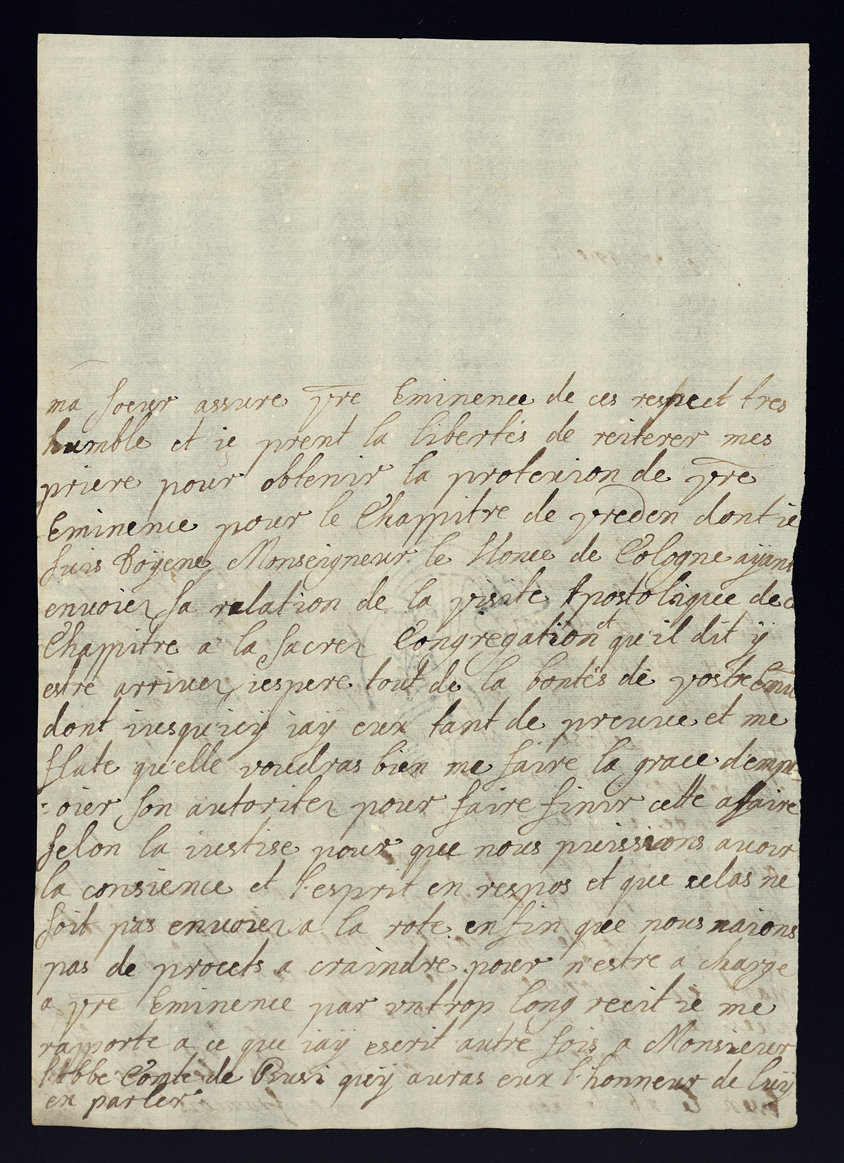 ma soeur assure vre Eminence de ces respect tres
humble et ie prent la libertés de reiterer mes
priere pour obtenir la protexion de vre
Eminence pour le Chappitre de vreden dont ie
suis Doÿene, Monseigneur le Nonce de Cologne aÿant
envoiez sa relation de la visite Apostolique de
Chappitre a la sacrez Congregation et qu'il dit ÿ
estre arrivez, iespere tout de la bontés de vostre
dont iusqu'icÿ iaÿ eux tant de preuve et me
flate qu'elle voudras bien me faire la grace demp
=oier son autoritez pour faire finir cette afaire
selon la iustise pour que nous puissions avoir
la consience et l'esprit en respos et que celas ne
soit pas envoiez a la rote enfin que nous naions
pas de procets a craindre pour n'estre a charge
a vre Eminence par un trop long recit ie me
rapporte a ce que iaÿ escrit autre fois a Monsieur
l'Abbe Comte de Busi quÿ auras eux l'honneur de luÿ
en parler